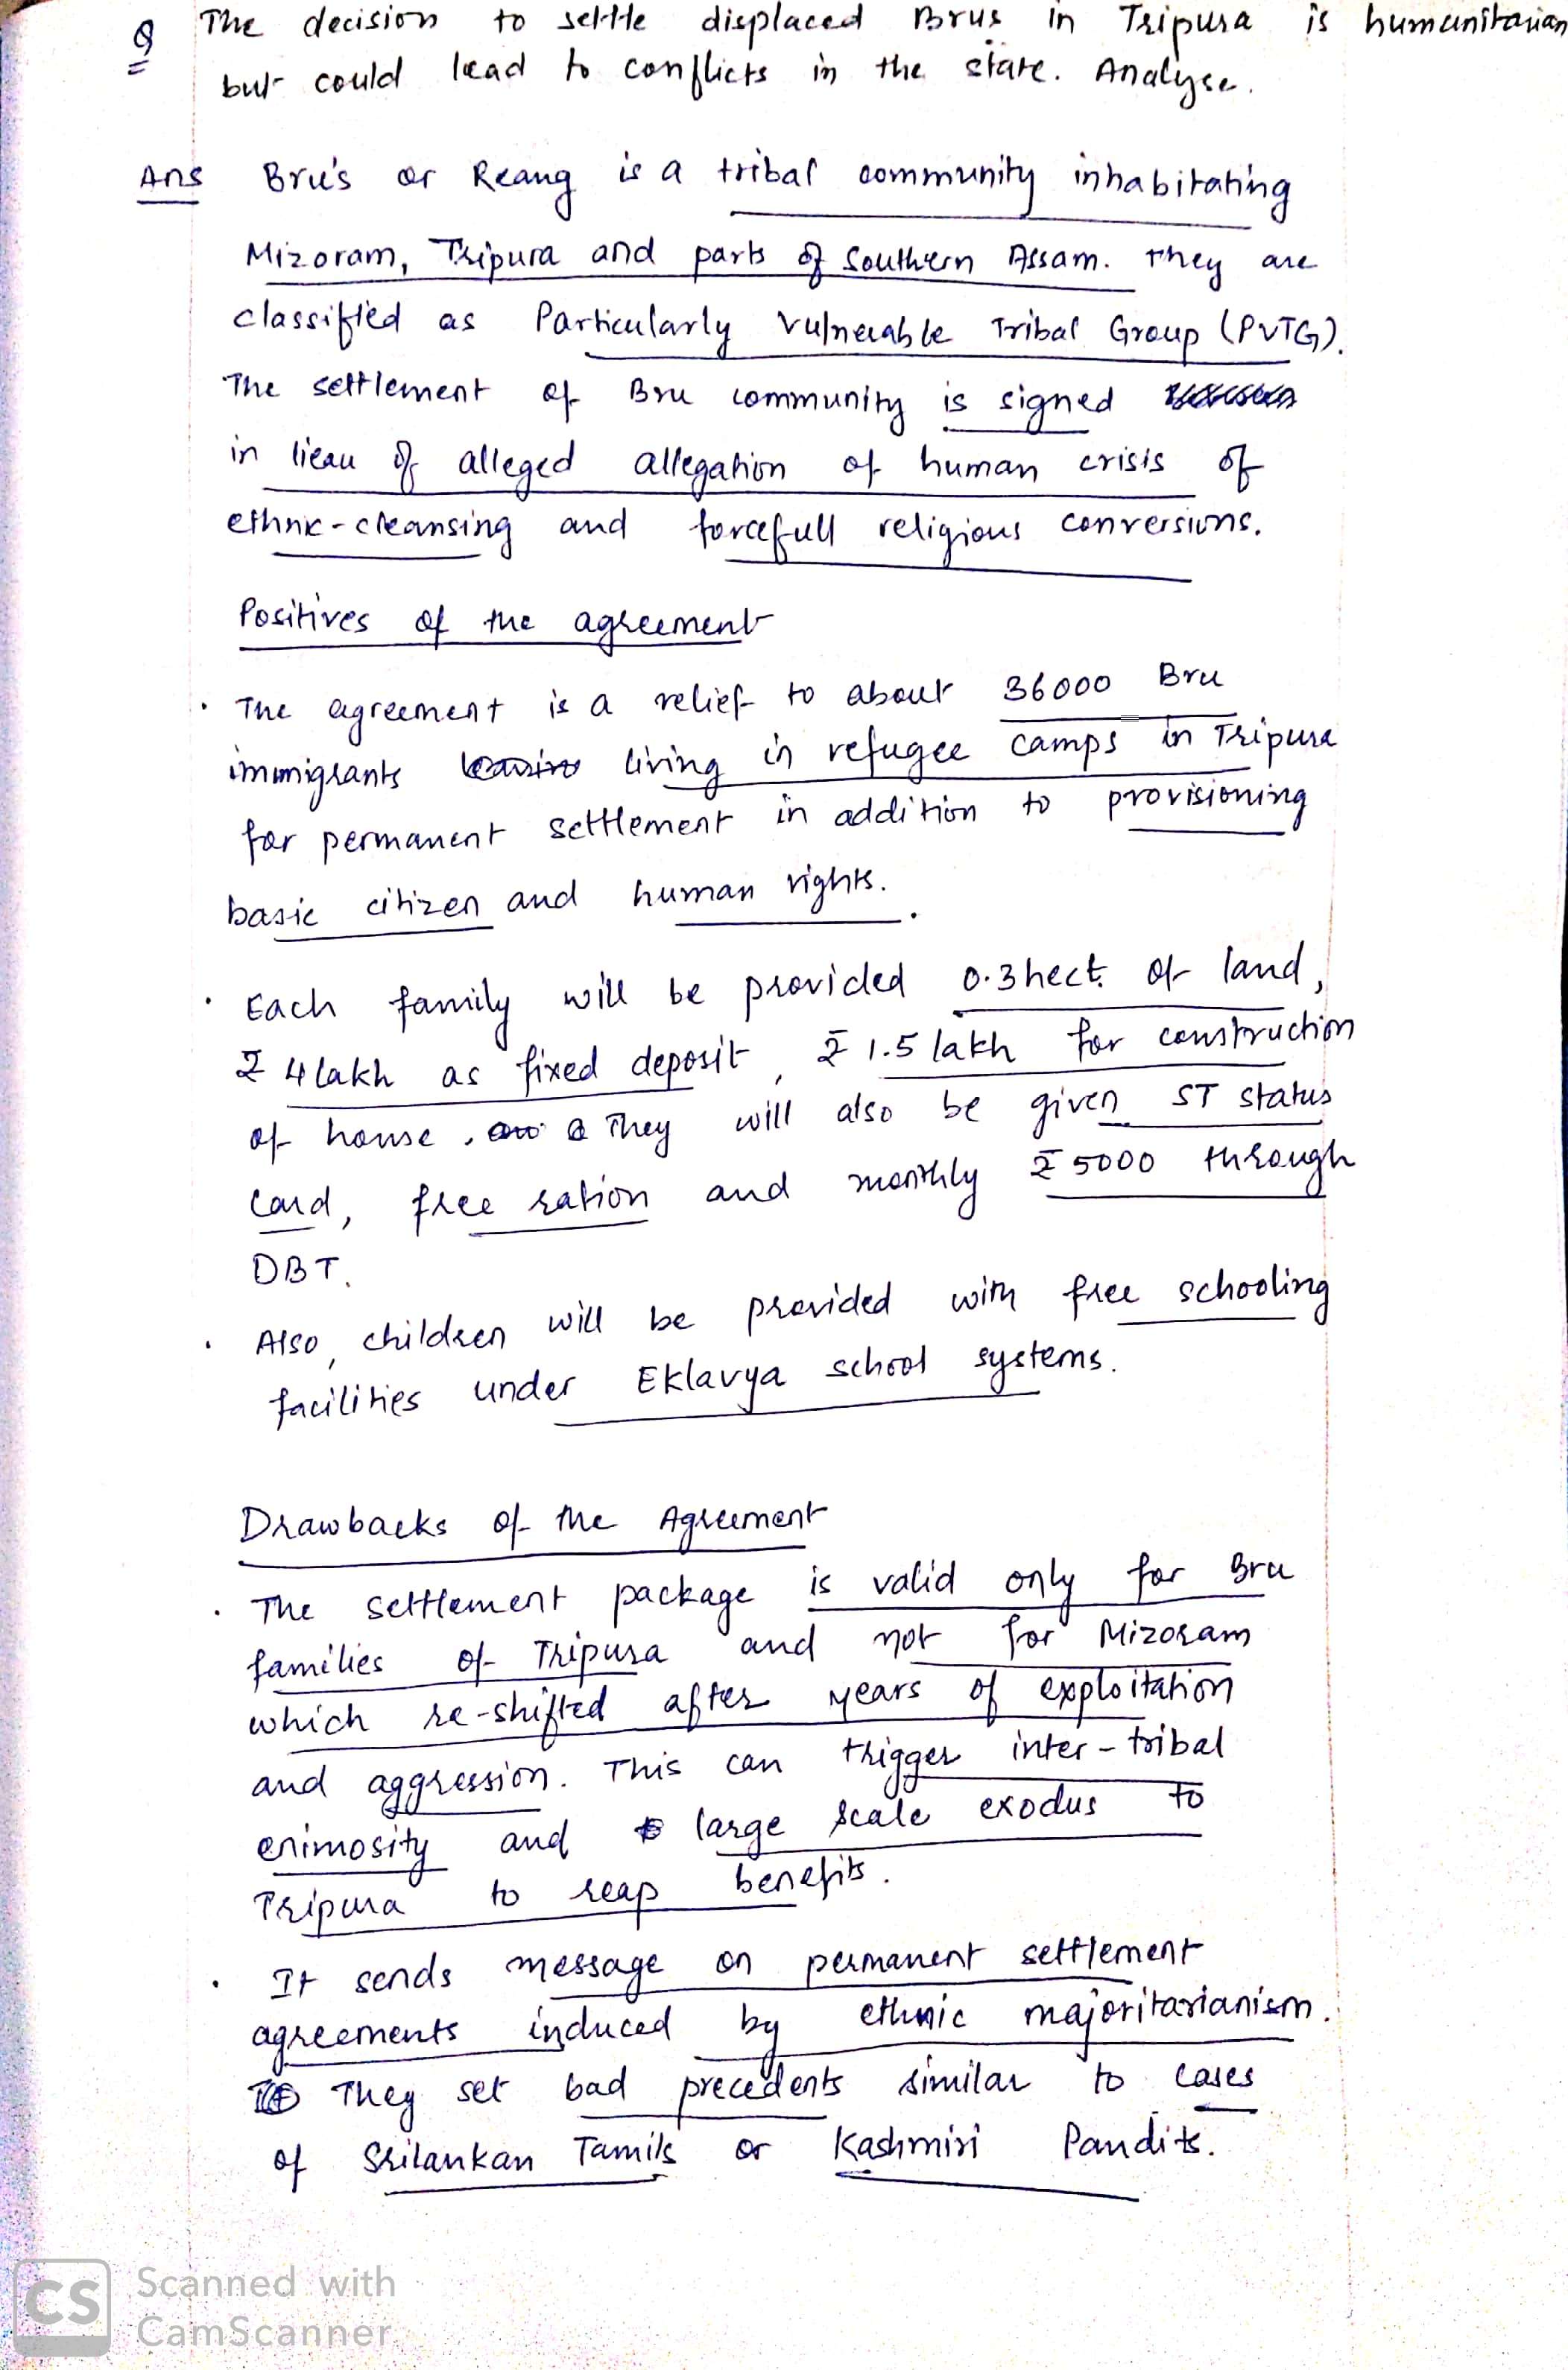 Q The decision to settle displaced Brus in Tripura is humanitarian
but could lead to conflicts in the state. Analyse.
Ans Bru's or Reang is a tribal community inhabitating
Mizoram, Tripura and parts of Southern Assam. They are
classified as Particularly Vulnerable Tribal Group (PVTG).
The settlement of Bru community is signed
in lieau of alleged allegation of human crisis of
ethnic-cleansing and forcefull religious conversions.
Positives of the agreement
• The agreement is a relief to about 36000 Bru
immigrants living in refugee camps in Tripura
for permanent settlement in addition to provisioning
basic citizen and human rights.
• Each family will be provided 0.3 hect. of land,
₹ 4 lakh as fixed deposit, ₹ 1.5 lakh for construction
of house, They will also be given ST status
card, free ration and monthly ₹ 5000 through
DBT.
• Also, children will be provided with free schooling
facilities under Eklavya school systems.
Drawbacks of the Agreement
• The settlement package is valid only for Bru
families of Tripura and not for Mizoram
which re-shifted after years of exploitation
and aggression. This can trigger inter-tribal
enimosity and large scale exodus to
Tripura to reap benefits.
• It sends message on permanent settlement
agreements induced by ethnic majoritarianism.
They set bad precedents similar to cases
of Srilankan Tamils or Kashmiri Pandits.
CS Scanned with
CamScanner